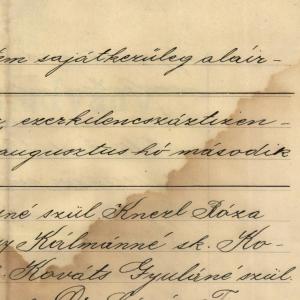 em sajátkezűleg aláir-
ezerkilencszáztizen-
augusztus hó második
né szül Knerl Róza
y Kálmánné sk. Ko-
Kováts Gyuláné szül.